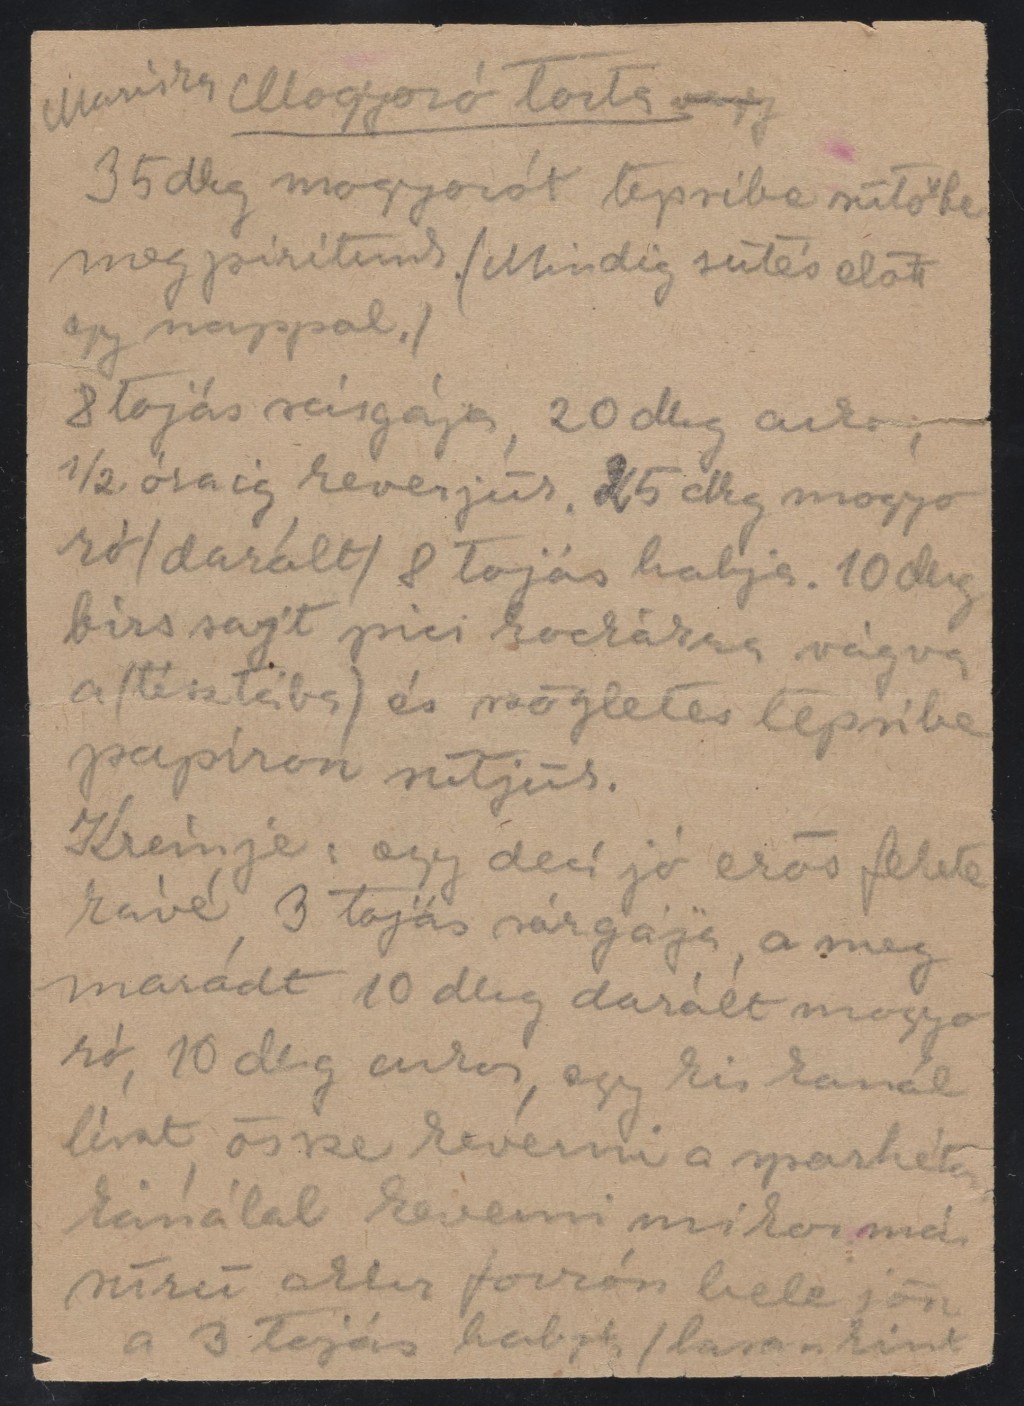 Mariska Mogyoró torta vagy
35 dkg mogyorót tepsibe sütőbe
megpiritunk. (Mindig sütés előtt
egy nappal.)
8 tojás sárgája, 20 dkg cukor,
1/2 óraig keverjük. 25 dkg mogyo
ró /darált/ 8 tojás habja. 10 dkg
birs sajt pici kockákra vágva
a (tésztába) és szögletes tepsibe
papíron sütjük.
Krémje: egy deci jó erős fekete
kávé, 3 tojás sárgája, a meg
maradt 10 dkg darált mogyo
ró, 10 dkg cukor, egy kis kanál
liszt, össze keverni a sparhéton
kanálal keverni mikor már
sűrű akkor forrón bele jön
a 3 tojás habja /lasankint